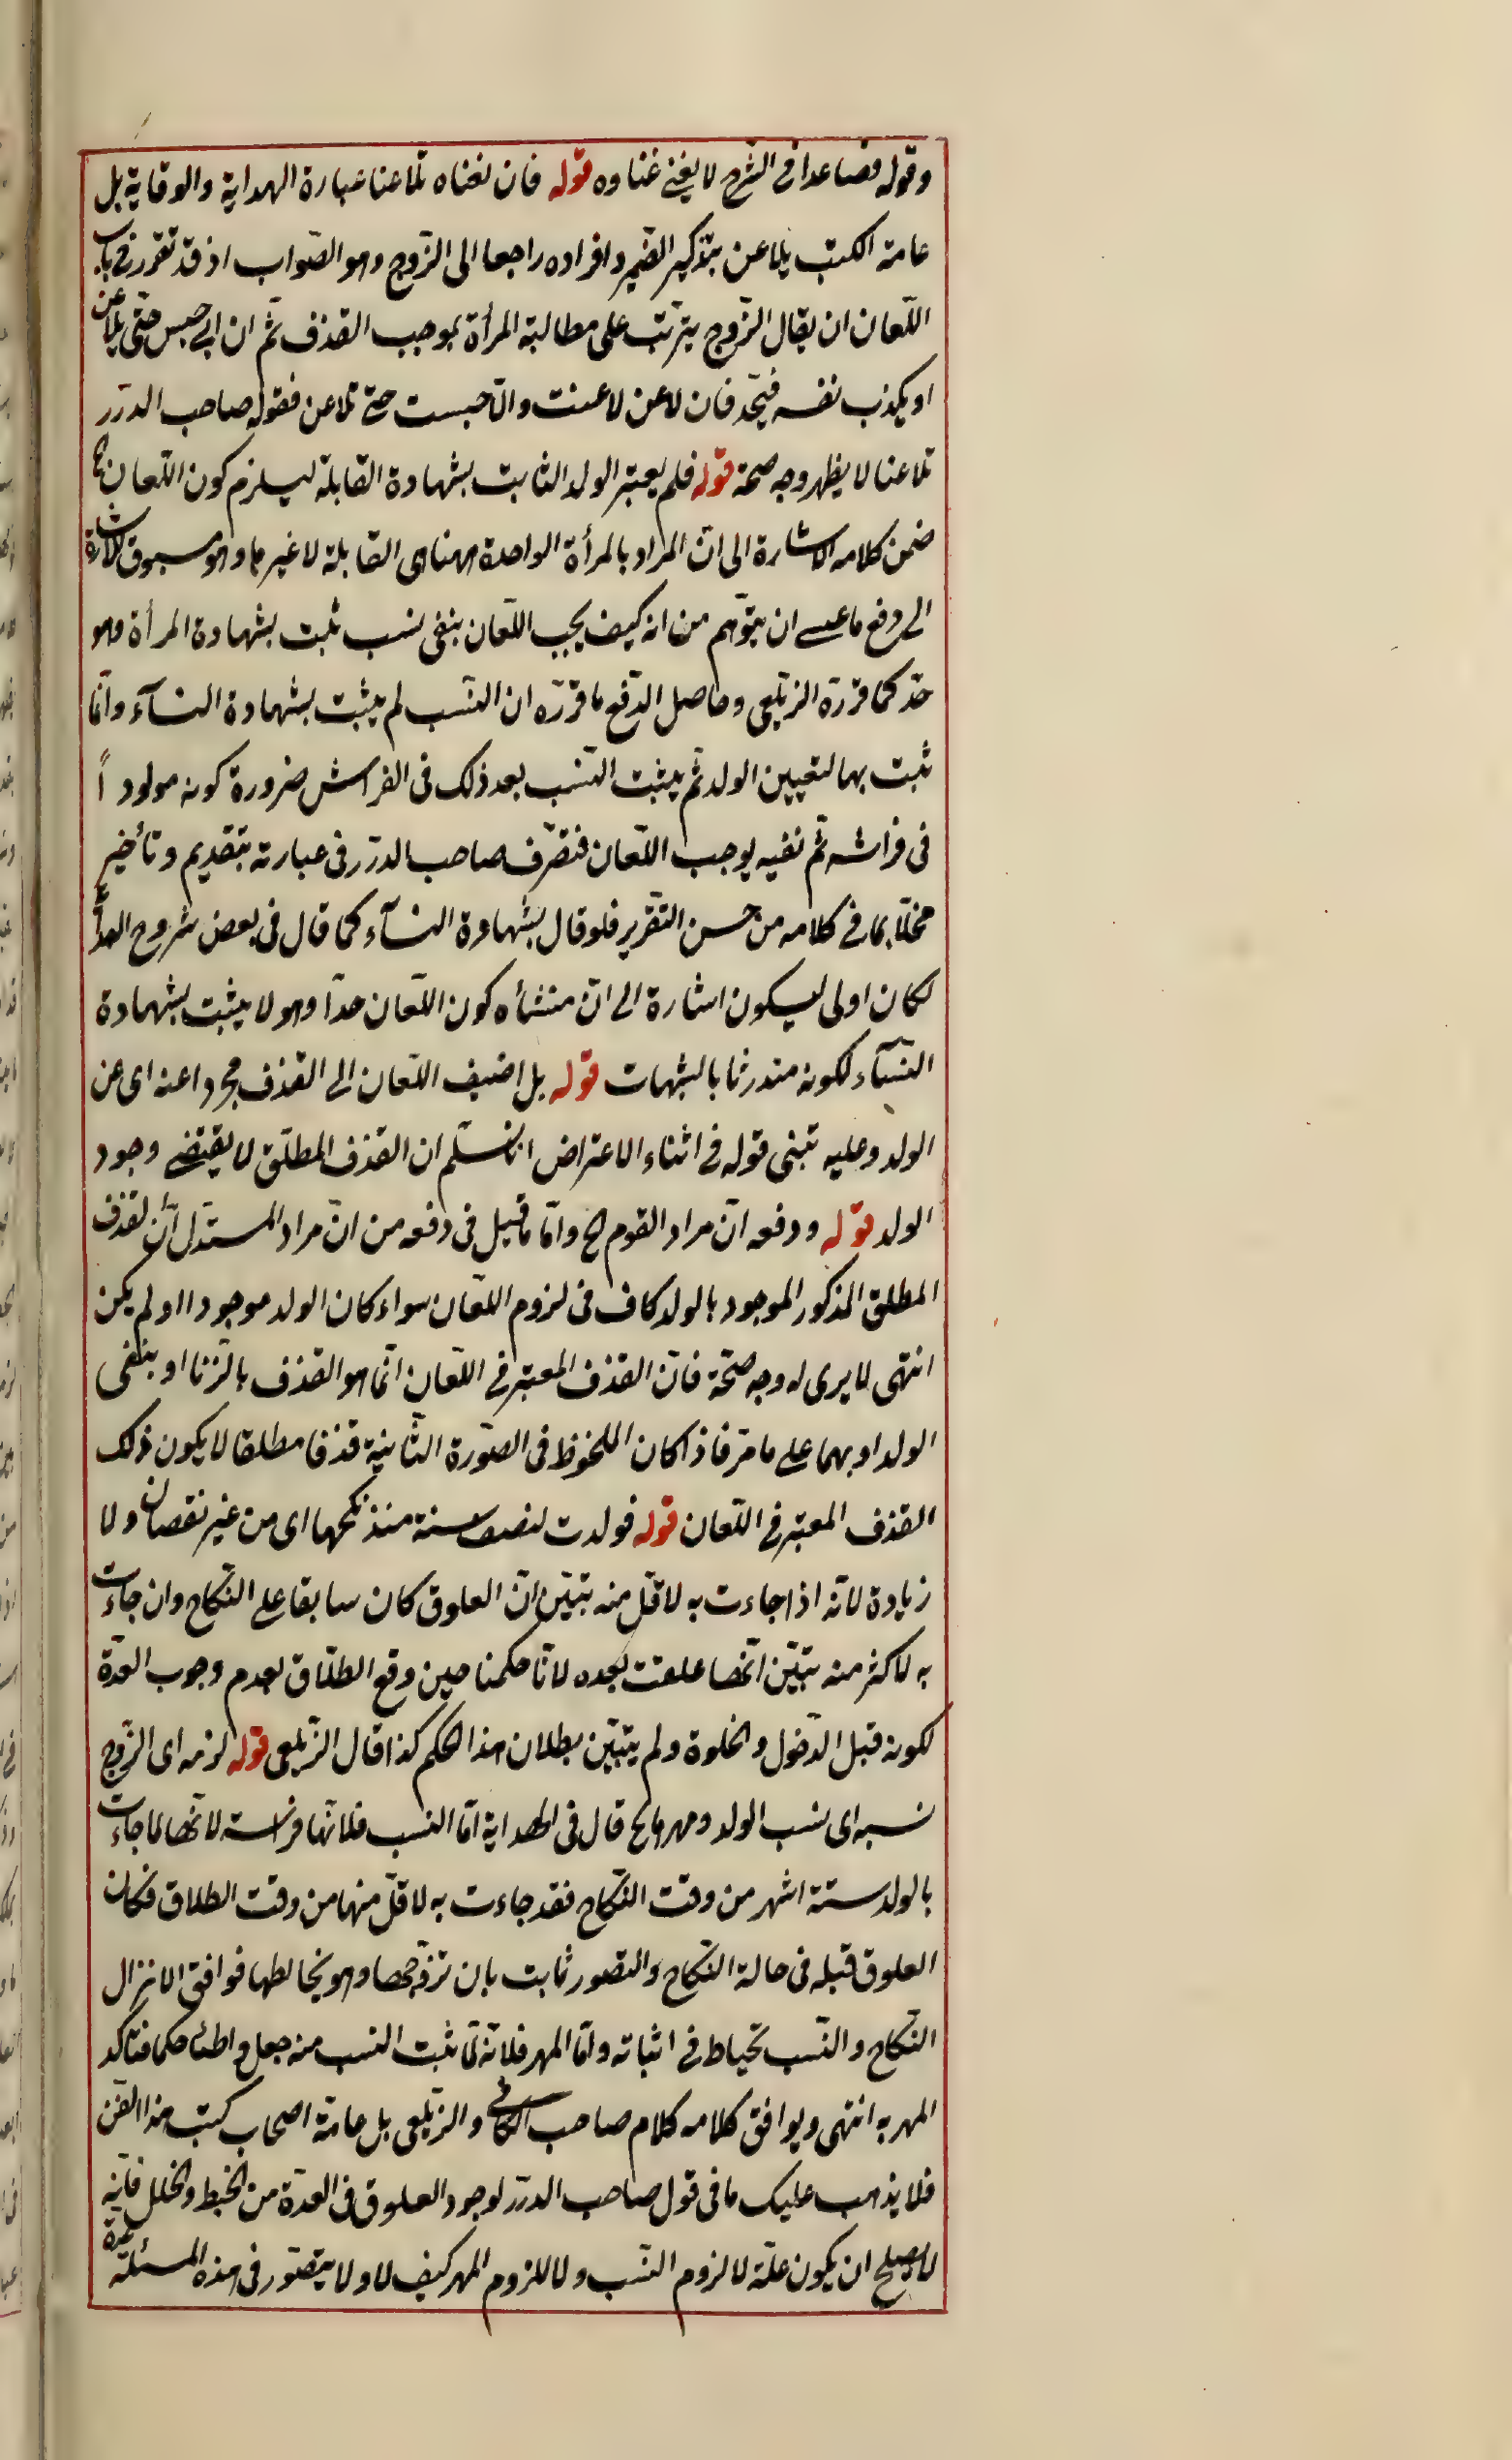 وقوله فصاعدا فى الشرح لا يغنى غناوه قوله فان نفناه تلاعنا عبارة الهداية والوقاية بل
عامة الكتب يلاعن بتذكير الضمير وافراده راجعا الى الزّوج وهو الصّواب اذ قد تقرر فى باب
اللّعان ان يقال الزّوج يترتّب على مطالبة المرأة بموجب القذف ثمّ ان ابى حبس حتّى يلاعن
او يكذب نفسه فيحدّ فان لاعن لاعنت والّا حبست حتى تلاعن فقول صاحب الدرر
تلاعنا لا يظهر وجه صحة قوله فلم يعتبر الولد الثابت بشهادة القابلة ليلزم كون اللّعان
ضمن كلامه الاشارة الى انّ المراد بالمرأة الواحدة ههنا هى القابلة لا غيرها وهو مسبوق للاشارة
الى دفع ما عسى ان يتوّهم من انه كيف يجب اللّعان بنفى نسب ثبت بشهادة المرأة وهو
حدّ كما قررّه الزيلعى وحاصل الدّفع ما قررّه ان النّسب لم يثبت بشهادة النسآء وانّما
ثبت بها لتعيين الولد ثمّ يثبت النّسب بعد ذلك فى الفراش ضرورة كونه مولوداً
فى فراشه ثمّ نفيه يوجب اللّعان فتصّرف صاحب الدرر فى عبارته بتقديم وتأخير
مخلّا بما فى كلامه من حسن التقرير فلو قال بشهادة النسآء كما قال فى بعض شروح الهدا
لكان اولى ليكون اشارة الى انّ منشأه كون اللّعان حدّا وهو لا يثبت بشهادة
النّسآء لكونه مندرئا بالشبهات قوله بل اضيف اللّعان الى القذف مجردا عنه اى عن
الولد وعليه تبنى قوله فى اثناء الاعتراض انا نسلّم ان القذف المطلق لا يقتضى وجود
الولد قوله ودفعه انّ مراد القوم الخ وامّا ما قيل فى دفعه من انّ مراد المستدل انّ لقذف
المطلق المذكور الموجود بالولد كاف فى لزوم اللّعان سواء كان الولد موجودا او لم يكن
انتهى لا يرى له وجه صحّة فانّ القذف المعتبر فى اللّعان انّما هو القذف بالزّنا او بنفى
الولد او بهما على ما مرّ فاذا كان الملحوظ فى الصّورة الثّانية قذفا مطلقا لا يكون ذلك
القذف المعتبر فى اللّعان قوله فولدت لنصف سنة منذ نكحها اى من غير نقصان ولا
زيادة لانّه اذا جاءت به لاقلّ منه تبيّن انّ العلوق كان سابقا على النّكاح وان جاءت
به لاكثر منه تبيّن انّها علقت بعده لانّا حكمنا حين وقع الطلّاق بعدم وجوب العدّة
لكونه قبل الدّخول والخلوة ولم يتبيّن بطلان هذا الحكم كذا قال الزّيلعى قوله لزمه اى الزّوج
نسبه اى نسب الولد ومهرها الخ قال فى الهداية امّا النسب فلانّها فراشه لانّها لما جاءت
بالولد ستة اشهر من وقت النّكاح فقد جاءت به لاقلّ منها من وقت الطلاق فكان
العلوق قبله فى حالة النّكاح والتصور ثابت بان تزوّجها وهو يخالطها فوافق الانزال
النّكاح والنّسب يحتاط فى اثباته وامّا المهر فلانّه لمّا ثبت النسب منه جعل واطئا حكما فتأكد
المهر به انتهى ويوافق كلامه كلام صاحب الكافى والزيّلعى بل عامّة اصحاب كتب هذا الفنّ
فلا يذهب عليك ما فى قول صاحب الدرر لوجود العلوق فى العدّة من الخبط والخلل فانّه
لا يصلح ان يكون علّة لا لزوم النّسب ولا للزوم المهر كيف لا ولا يتصّور فى هذه المسئلة عدة